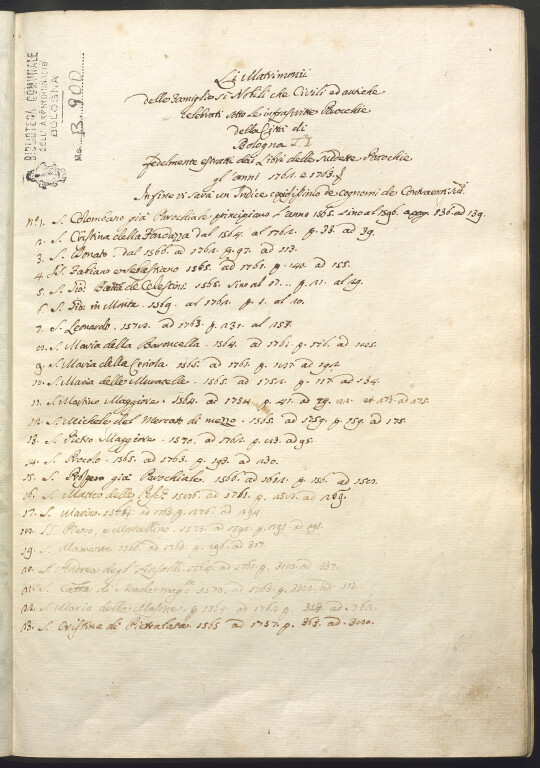 BIBLIOTECA COMUNALE
DELL'ARCHIGINNASIO
BOLOGNA
Ms. B. 900
Li Matrimonii
delle Famiglie si Nobili che Civili ed antiche
celebrati sotto le infrascritte Parocchie
della Città di
Bologna
fedelmente estratti dai Libri delle sudette Parochie
gl'anni 1762. e 1763.
In fine vi sarà un Indice copiosissimo de cognomi de Contraenti
n.o 1. S. Colombano già Parochiale principiano l'anno 1565. sino al 1596. a pag. 136. ad 139.
2. S. Cristina della Fondazza dal 1564. al 1762. p. 33. ad 39.
3. S. Donato. dal 1566. ad 1762. p. 97. ad 113.
4. SS. Fabiano e Sebastiano 1565. ad 1761. p. 140. ad 155.
5. S. Gio: Batta de Celestini 1565. sino al 17... p. 11. al 29.
6. S. Gio: in Monte. 1569. al 1762. p. 1. al 10.
7. S. Leonardo. 1572. ad 1763. p. 131. al 158.
8. S. Maria della Baroncella. 1564. ad 1761. p. 176. ad
9. S. Maria della Ceriola. 1565. ad 1761. p. 187. ad 192.
10. S. Maria delle Muratelle. 1565. ad 1752. p. 117. ad 134.
11. S. Martino Maggiore. 1564. ad 1734. p. 41. ad 79. et 173. ad 175.
12. S. Michele del Mercato di mezzo. 1565. ad 1759. p. 159. ad 175.
13. S. Pietro Maggiore. 1570. ad 1762. p. 83. ad 95.
14. S. Procolo. 1565. ad 1763. p. 193. ad 230.
15. S. Prospero già Parochiale. 1566. ad p. 156. ad 158.
16. S. Matteo delle 1586. ad 1761. p. ad 269.
17. S. Marino. 1564. ad 1763. p. 276. ad 294.
18. SS. Pietro, e Marcellino. 1573. ad 1592. p. ad
19. S. Mamante. ad 1762. p. 296. ad 317.
20. S. Andrea degl'Ansaldi. 1564. ad 1761. p. ad 337.
21. S. Catta di Strada mag.e 1570. ad 1763. p. ad
22. S. Maria della Mascarella. 1564. ad 1762. p. 353. ad 362.
23. S. Cristina di Pietralata. 1565 ad 1757. p. 363. ad 380.